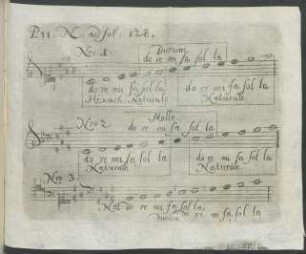 P. 11. N. ad fol: 128.
Nro 1
Durum
do re mi fa sol la
do re mi fa sol la
do re mi fa sol la
Hexach: Naturale
Naturale
Nro 2
Molle
do re mi fa sol la
do re mi fa sol la
do re mi fa sol la
Naturale
Naturale
Nro 3
Nat do re mi fa sol la
do re mi fa sol la